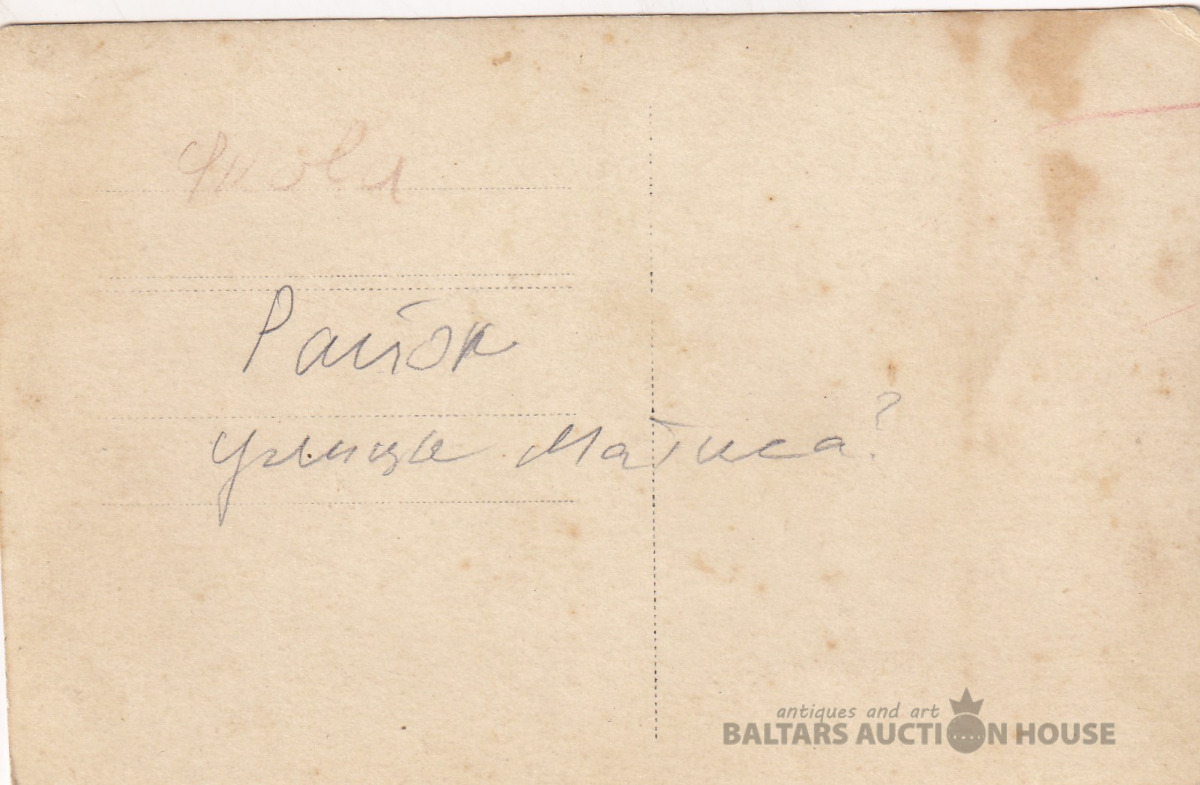 Район
улица Матиса?
antiques and art
BALTARS AUCTION HOUSE